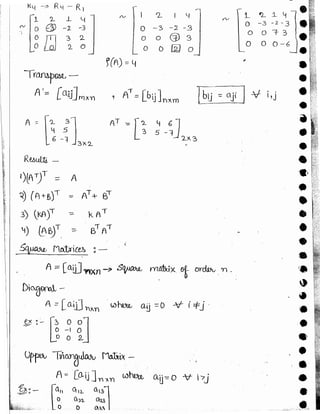 R4 → R4 - R1
~ [1 2 1 4; 0 (-3) -2 -3; 0 [1] 3 2; 0 [0] 2 0] ~ [1 2 1 4; 0 -3 -2 -3; 0 0 (7) 3; 0 0 [2] 0] ~ [1 2 1 4; 0 0 -3 -2 -3; 0 0 7 3; 0 0 0 -6]
ρ(A) = 4
Transpose —
A = [aij]m×n , A^T = [bij]n×m bij = aji ∀ i,j
A = [2 3; 4 5; 6 -7]3×2 A^T = [2 4 6; 3 5 -7]2×3
Results —
1) (A^T)^T = A
2) (A+B)^T = A^T + B^T
3) (KA)^T = K A^T
4) (AB)^T = B^T A^T
Square Matrices : —
A = [aij]n×n → Square matrix of order n.
Diagonal —
A = [aij]n×n where aij = 0 ∀ i ≠ j
Ex :- [3 0 0; 0 -1 0; 0 0 2]
Upper Triangular Matrix —
A = [aij]n×n where aij = 0 ∀ i>j
Ex:- [a11 a12 a13; 0 a22 a23; 0 0 a33]